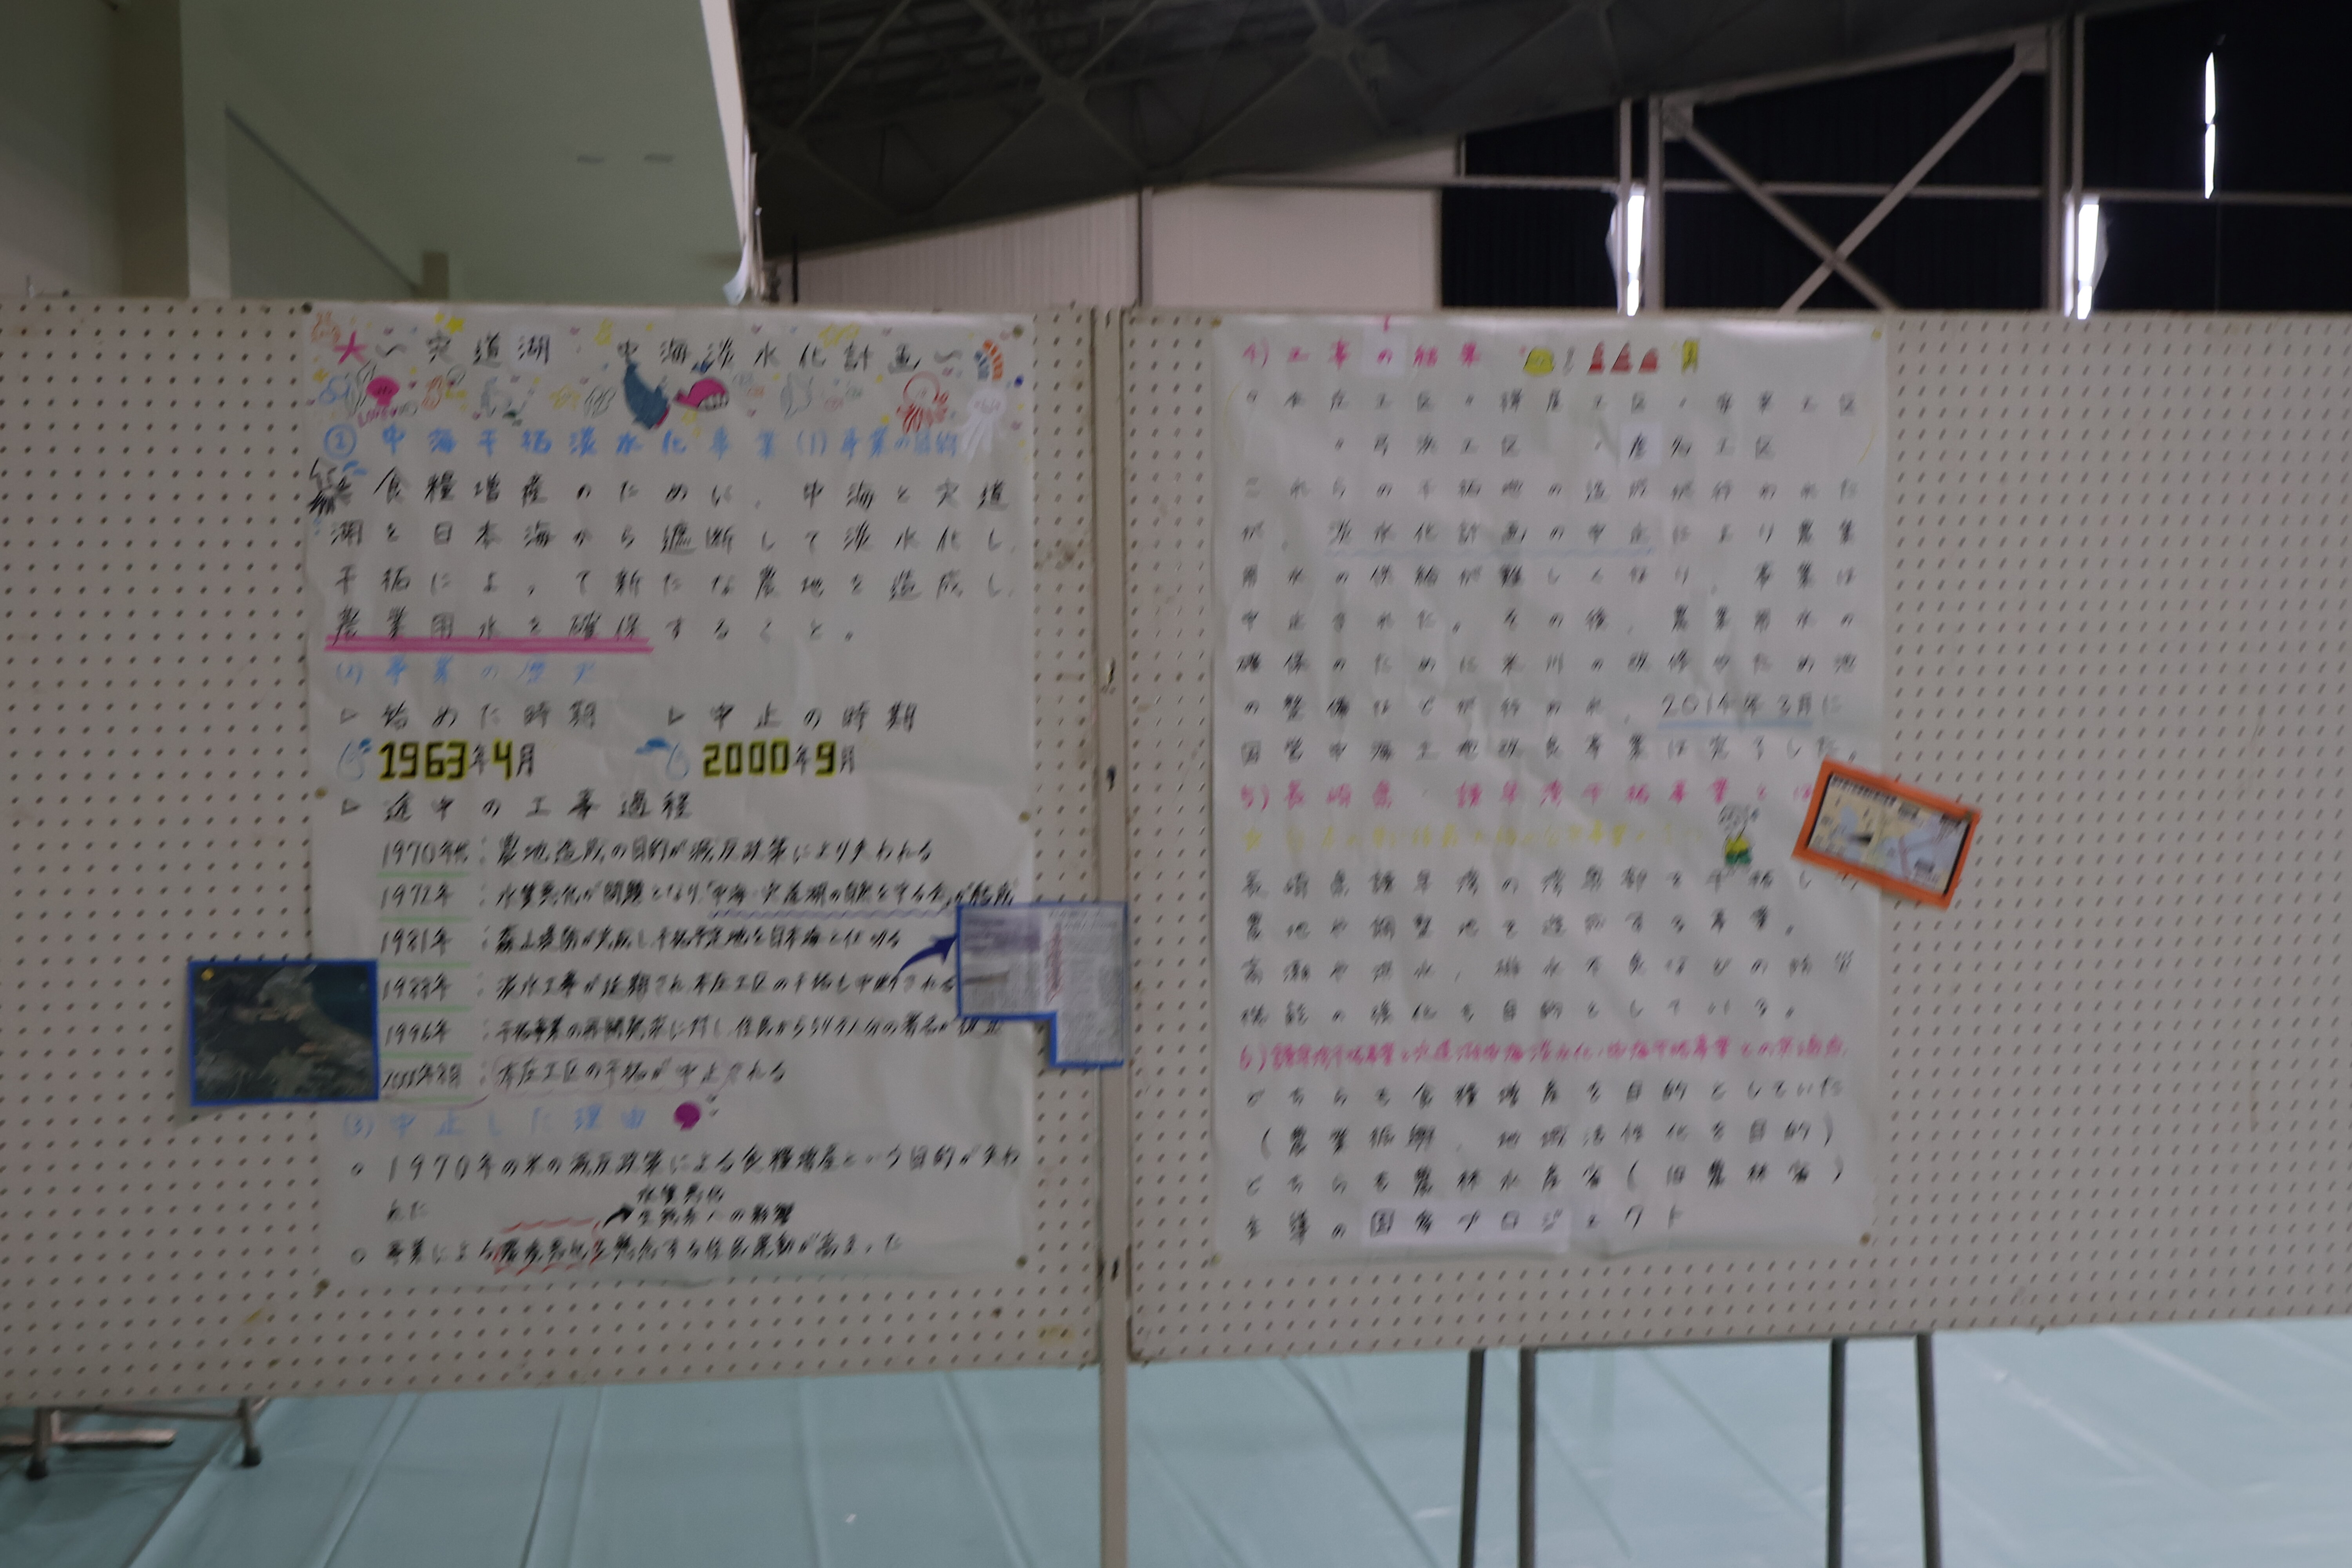 ～宍道湖・中海淡水化計画～
② 中海干拓淡水化事業 (1)事業の目的
食糧増産のために、中海と宍道
湖を日本海から遮断して淡水化し、
干拓によって新たな農地を造成し、
農業用水を確保すること。
(2) 事業の歴史
▷ 始めた時期 ▷ 中止の時期
1963年4月 2000年9月
▷ 途中の工事過程
1970年代：農地造成の目的が減反政策により失われる
：水質悪化が問題となり「中海・宍道湖の自然を守る会」が結成
1981年：森山堤防が完成し干拓予定地を日本海と仕切る
1988年：淡水工事が延期され本庄工区の干拓も中断される
1996年：干拓事業の再開要求に対し、住民から
：本庄工区の干拓が中止される
(3) 中止した理由
○ 1970年の米の減反政策による食糧増産という目的が失わ
れた
水質悪化
生態系への影響
○ 事業による を懸念する住民運動が高まった
4) 工事の結果
・本庄工区 ・揖屋工区 ・安来工区
・弓浜工区 ・彦名工区
これらの干拓地の造成が行われた
が、淡水化計画の中止により農業
用水の供給が難しくなり、事業は
中止された。その後、農業用水の
確保のために米川の改修やため池
の整備などが行われ、2014年3月に
国営中海土地改良事業は完了した。
5) 長崎県・諫早湾干拓事業とは
長崎県諫早湾の湾奥部を干拓し、
農地や調整池を造成する事業。
高潮や洪水、排水不良などの防災
機能の強化を目的としている。
6) 諫早湾干拓事業と宍道湖中海淡水化・中海干拓事業との共通点
どちらも食糧増産を目的としていた
(農業振興、地域活性化を目的)
どちらも農林水産省(旧農林省)
主導の国家プロジェクト